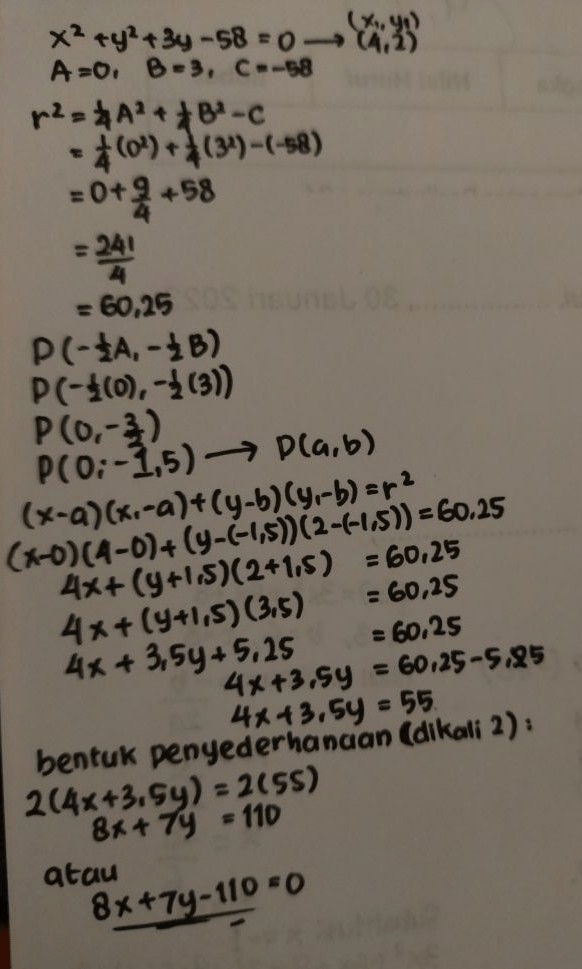 x² + y² + 3y - 58 = 0 → (x₁, y₁)
(4, 2)
A = 0, B = 3, C = -58
r² = ¼A² + ¼B² - C
= ¼(0²) + ¼(3²) - (-58)
= 0 + 9/4 + 58
= 241/4
= 60,25
P(-½A, -½B)
P(-½(0), -½(3))
P(0, -3/2)
P(0; -1,5) → P(a, b)
(x-a)(x₁-a) + (y-b)(y₁-b) = r²
(x-0)(4-0) + (y-(-1,5))(2-(-1,5)) = 60,25
4x + (y+1,5)(2+1,5) = 60,25
4x + (y+1,5)(3,5) = 60,25
4x + 3,5y + 5,25 = 60,25
4x + 3,5y = 60,25 - 5,25
4x + 3,5y = 55
bentuk penyederhanaan (dikali 2) :
2(4x + 3,5y) = 2(55)
8x + 7y = 110
atau
8x + 7y - 110 = 0